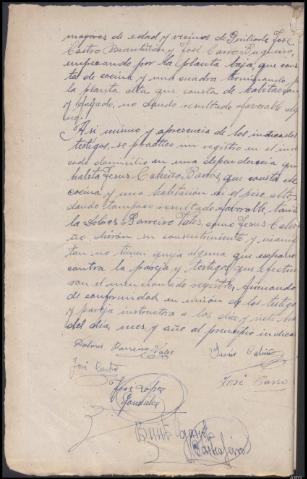 mayores de edad y vecinos de José
Castro y José Carro
empezando por la planta baja, que cons
ta de cocina y una cuadra, terminando
la planta alta que consta de habitacion
y fayado, no dando resultado favorable al
Asi mismo y a presencia de los indicados
testigos, se practico un registro en el
domicilio en una dependencia que
habita Jesus que consta de
cocina y una habitacion en el piso alto
dando tampoco resultado favorable, tanto
la Dolores Barreiro como Jesus
dieron su consentimiento y
tan no tienen queja alguna que exponer
contra la pareja y testigos que efectua
ron el mencionado registro, firmando
de conformidad en union de los testigos
y pareja instructora a las diez y siete horas
del dia, mes y año al principio indica
Dolores Barreiro
José Castro
José Carro
José Lopez
Gonzalez